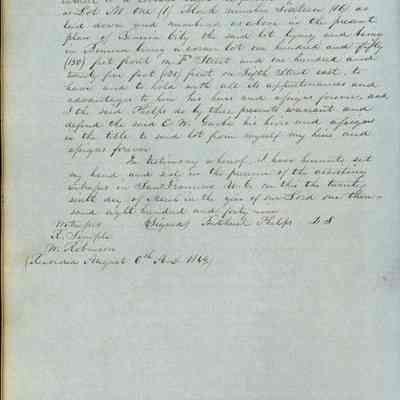 or Lot No. One (1) Block number Sixteen (16) as
laid down and numbered as above in the present
plan of Benicia City the said lot lying and being
in Benicia being a corner lot one hundred and fifty
(150) feet front on F Street and one hundred and
twenty five feet (125) front on Fifth Street east, to
have and to hold with all its appurtenances and
advantages to him his heirs and assigns forever, and
I the said Phelps do by these presents warrant and
defend the said E. W. his heirs and assigns
in the title to said lot from myself my heirs and
assigns forever
In testimony whereof I have hereunto set
my hand and seal in the presence of the assisting
witnesses in San Francisco U. C. on this the twenty
sixth day of March in the year of our Lord one thou-
sand eight hundred and forty nine
Witnesses (Signed) Phelps L S
R. Semple
W. Robinson
(Recorded August 6th A.D. 1849)